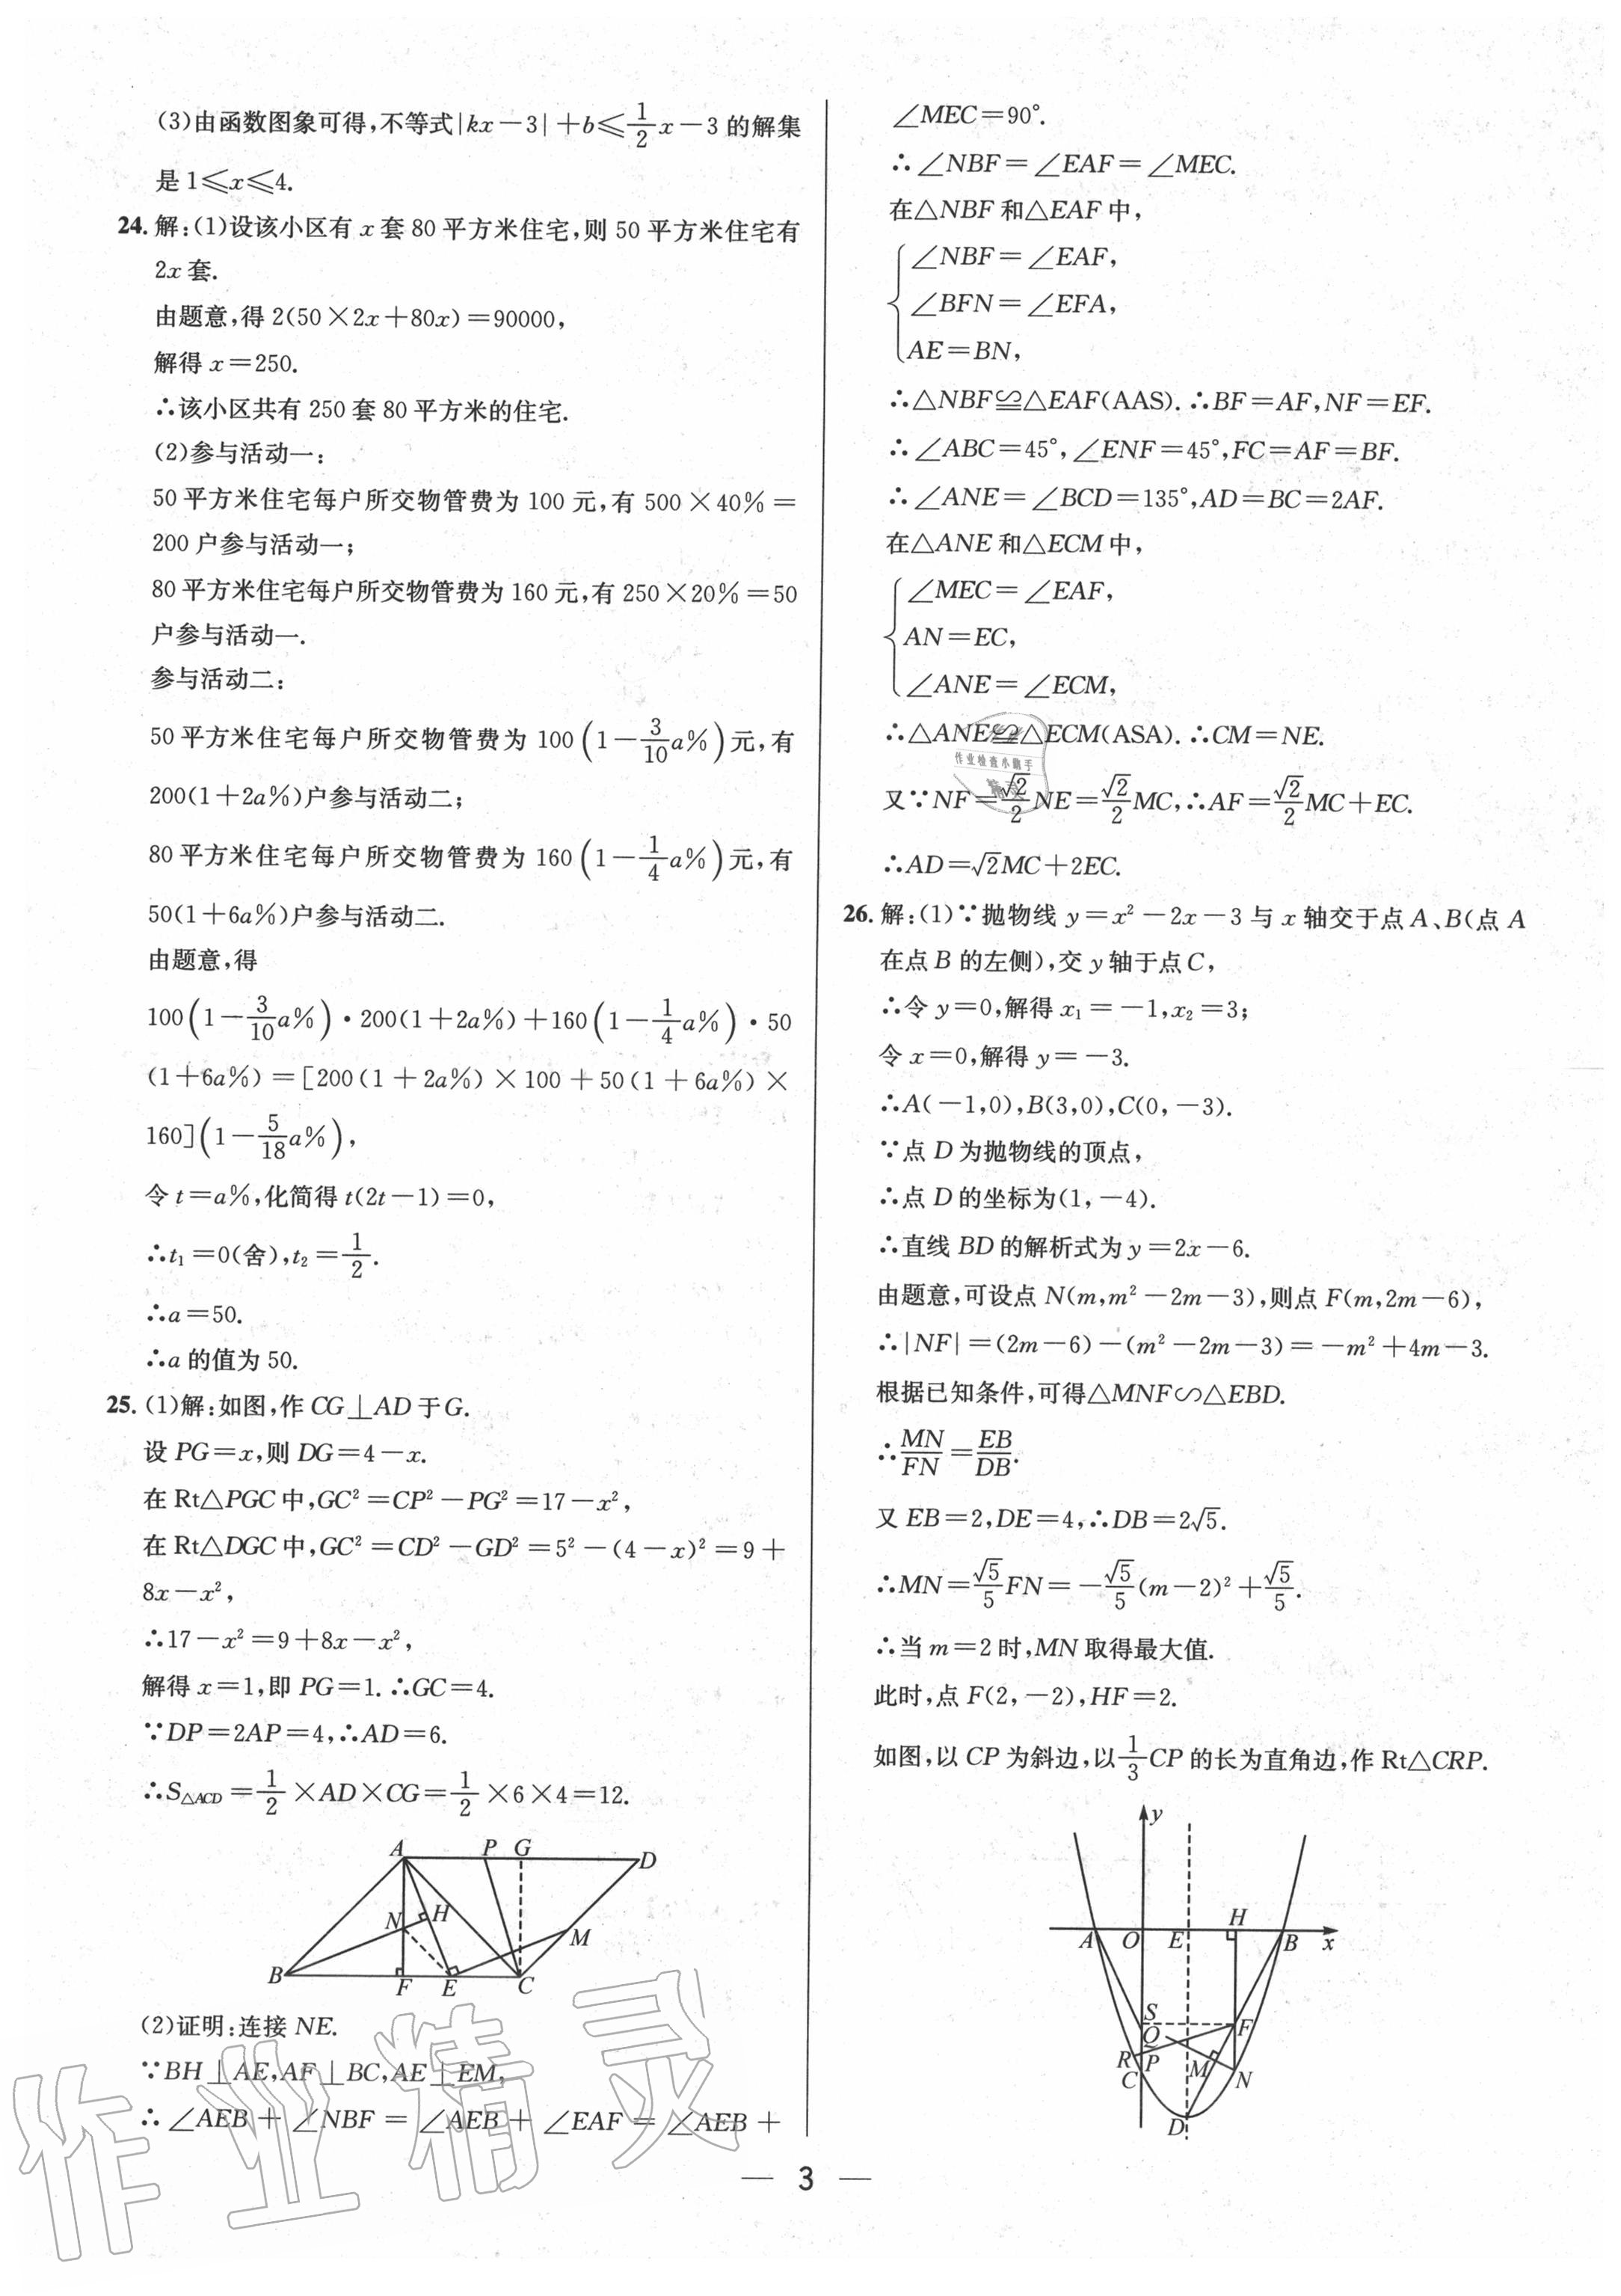 (3)由函数图象可得,不等式|kx-3|+b≤1/2x-3的解集
是1≤x≤4.
24.解:(1)设该小区有x套80平方米住宅,则50平方米住宅有
2x套.
由题意,得2(50×2x+80x)=90000,
解得x=250.
∴该小区共有250套80平方米的住宅.
(2)参与活动一:
50平方米住宅每户所交物管费为100元,有500×40%=
200户参与活动一;
80平方米住宅每户所交物管费为160元,有250×20%=50
户参与活动一.
参与活动二:
50平方米住宅每户所交物管费为100(1-3/10a%)元,有
200(1+2a%)户参与活动二;
80平方米住宅每户所交物管费为160(1-1/4a%)元,有
50(1+6a%)户参与活动二.
由题意,得
100(1-3/10a%)·200(1+2a%)+160(1-1/4a%)·50
(1+6a%)=[200(1+2a%)×100+50(1+6a%)×
160](1-5/18a%),
令t=a%,化简得t(2t-1)=0,
∴t₁=0(舍),t₂=1/2.
∴a=50.
∴a的值为50.
25.(1)解:如图,作CG⊥AD于G.
设PG=x,则DG=4-x.
在Rt△PGC中,GC²=CP²-PG²=17-x²,
在Rt△DGC中,GC²=CD²-GD²=5²-(4-x)²=9+
8x-x²,
∴17-x²=9+8x-x²,
解得x=1,即PG=1.∴GC=4.
∵DP=2AP=4,∴AD=6.
∴S△ACD=1/2×AD×CG=1/2×6×4=12.
A P G D
N H
M
B F E C
(2)证明:连接NE.
∵BH⊥AE,AF⊥BC,AE⊥EM,
∴∠AEB+∠NBF=∠AEB+∠EAF=∠AEB+
∠MEC=90°.
∴∠NBF=∠EAF=∠MEC.
在△NBF和△EAF中,
∠NBF=∠EAF,
∠BFN=∠EFA,
AE=BN,
∴△NBF≌△EAF(AAS).∴BF=AF,NF=EF.
∴∠ABC=45°,∠ENF=45°,FC=AF=BF.
∴∠ANE=∠BCD=135°,AD=BC=2AF.
在△ANE和△ECM中,
∠MEC=∠EAF,
AN=EC,
∠ANE=∠ECM,
∴△ANE≌△ECM(ASA).∴CM=NE.
又∵NF=√2/2NE=√2/2MC,∴AF=√2/2MC+EC.
∴AD=√2MC+2EC.
26.解:(1)∵抛物线y=x²-2x-3与x轴交于点A、B(点A
在点B的左侧),交y轴于点C,
∴令y=0,解得x₁=-1,x₂=3;
令x=0,解得y=-3.
∴A(-1,0),B(3,0),C(0,-3).
∵点D为抛物线的顶点,
∴点D的坐标为(1,-4).
∴直线BD的解析式为y=2x-6.
由题意,可设点N(m,m²-2m-3),则点F(m,2m-6),
∴|NF|=(2m-6)-(m²-2m-3)=-m²+4m-3.
根据已知条件,可得△MNF∽△EBD.
∴MN/FN=EB/DB.
又EB=2,DE=4,∴DB=2√5.
∴MN=√5/5FN=-√5/5(m-2)²+√5/5.
∴当m=2时,MN取得最大值.
此时,点F(2,-2),HF=2.
如图,以CP为斜边,以1/3CP的长为直角边,作Rt△CRP.
y
H
A O E B x
S
Q F
R P M N
C
D
作业检查小助手
作业精灵
— 3 —